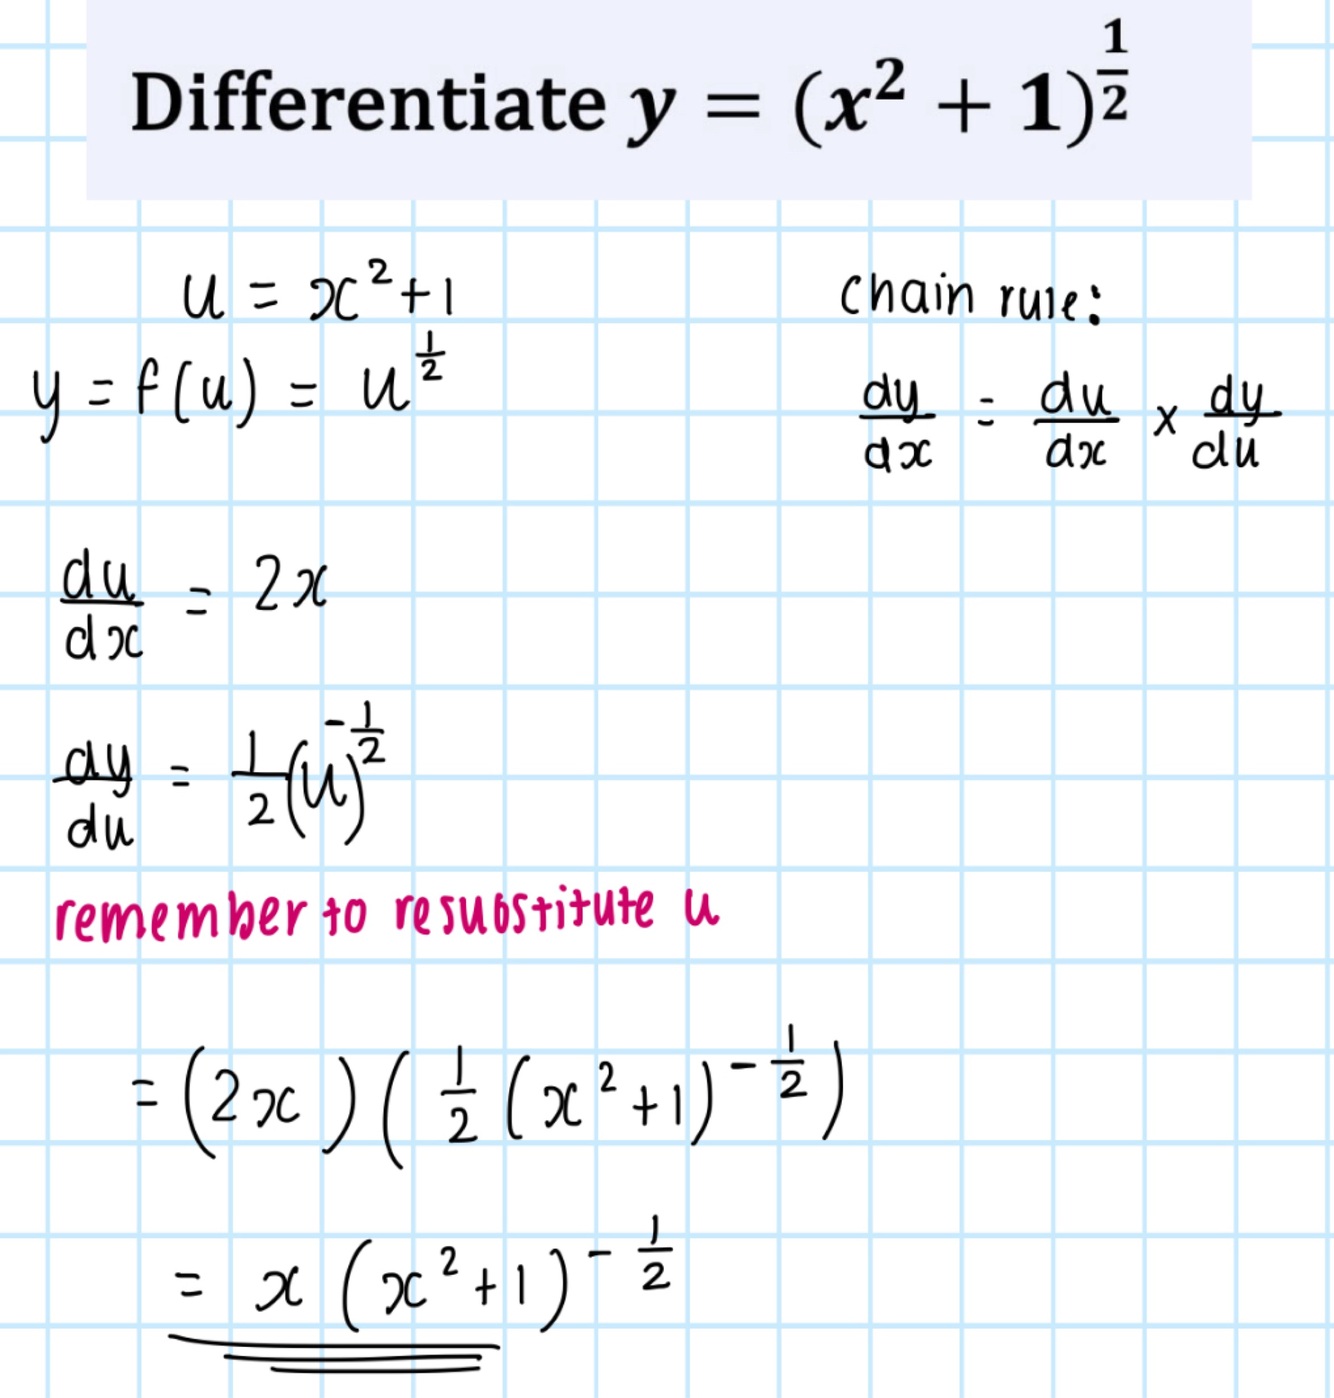 Differentiate y = (x² + 1)^(1/2)
u = x²+1
y = f(u) = u^(1/2)
chain rule:
dy/dx = du/dx × dy/du
du/dx = 2x
dy/du = 1/2(u)^(-1/2)
remember to resubstitute u
= (2x)(1/2(x²+1)^(-1/2))
= x(x²+1)^(-1/2)